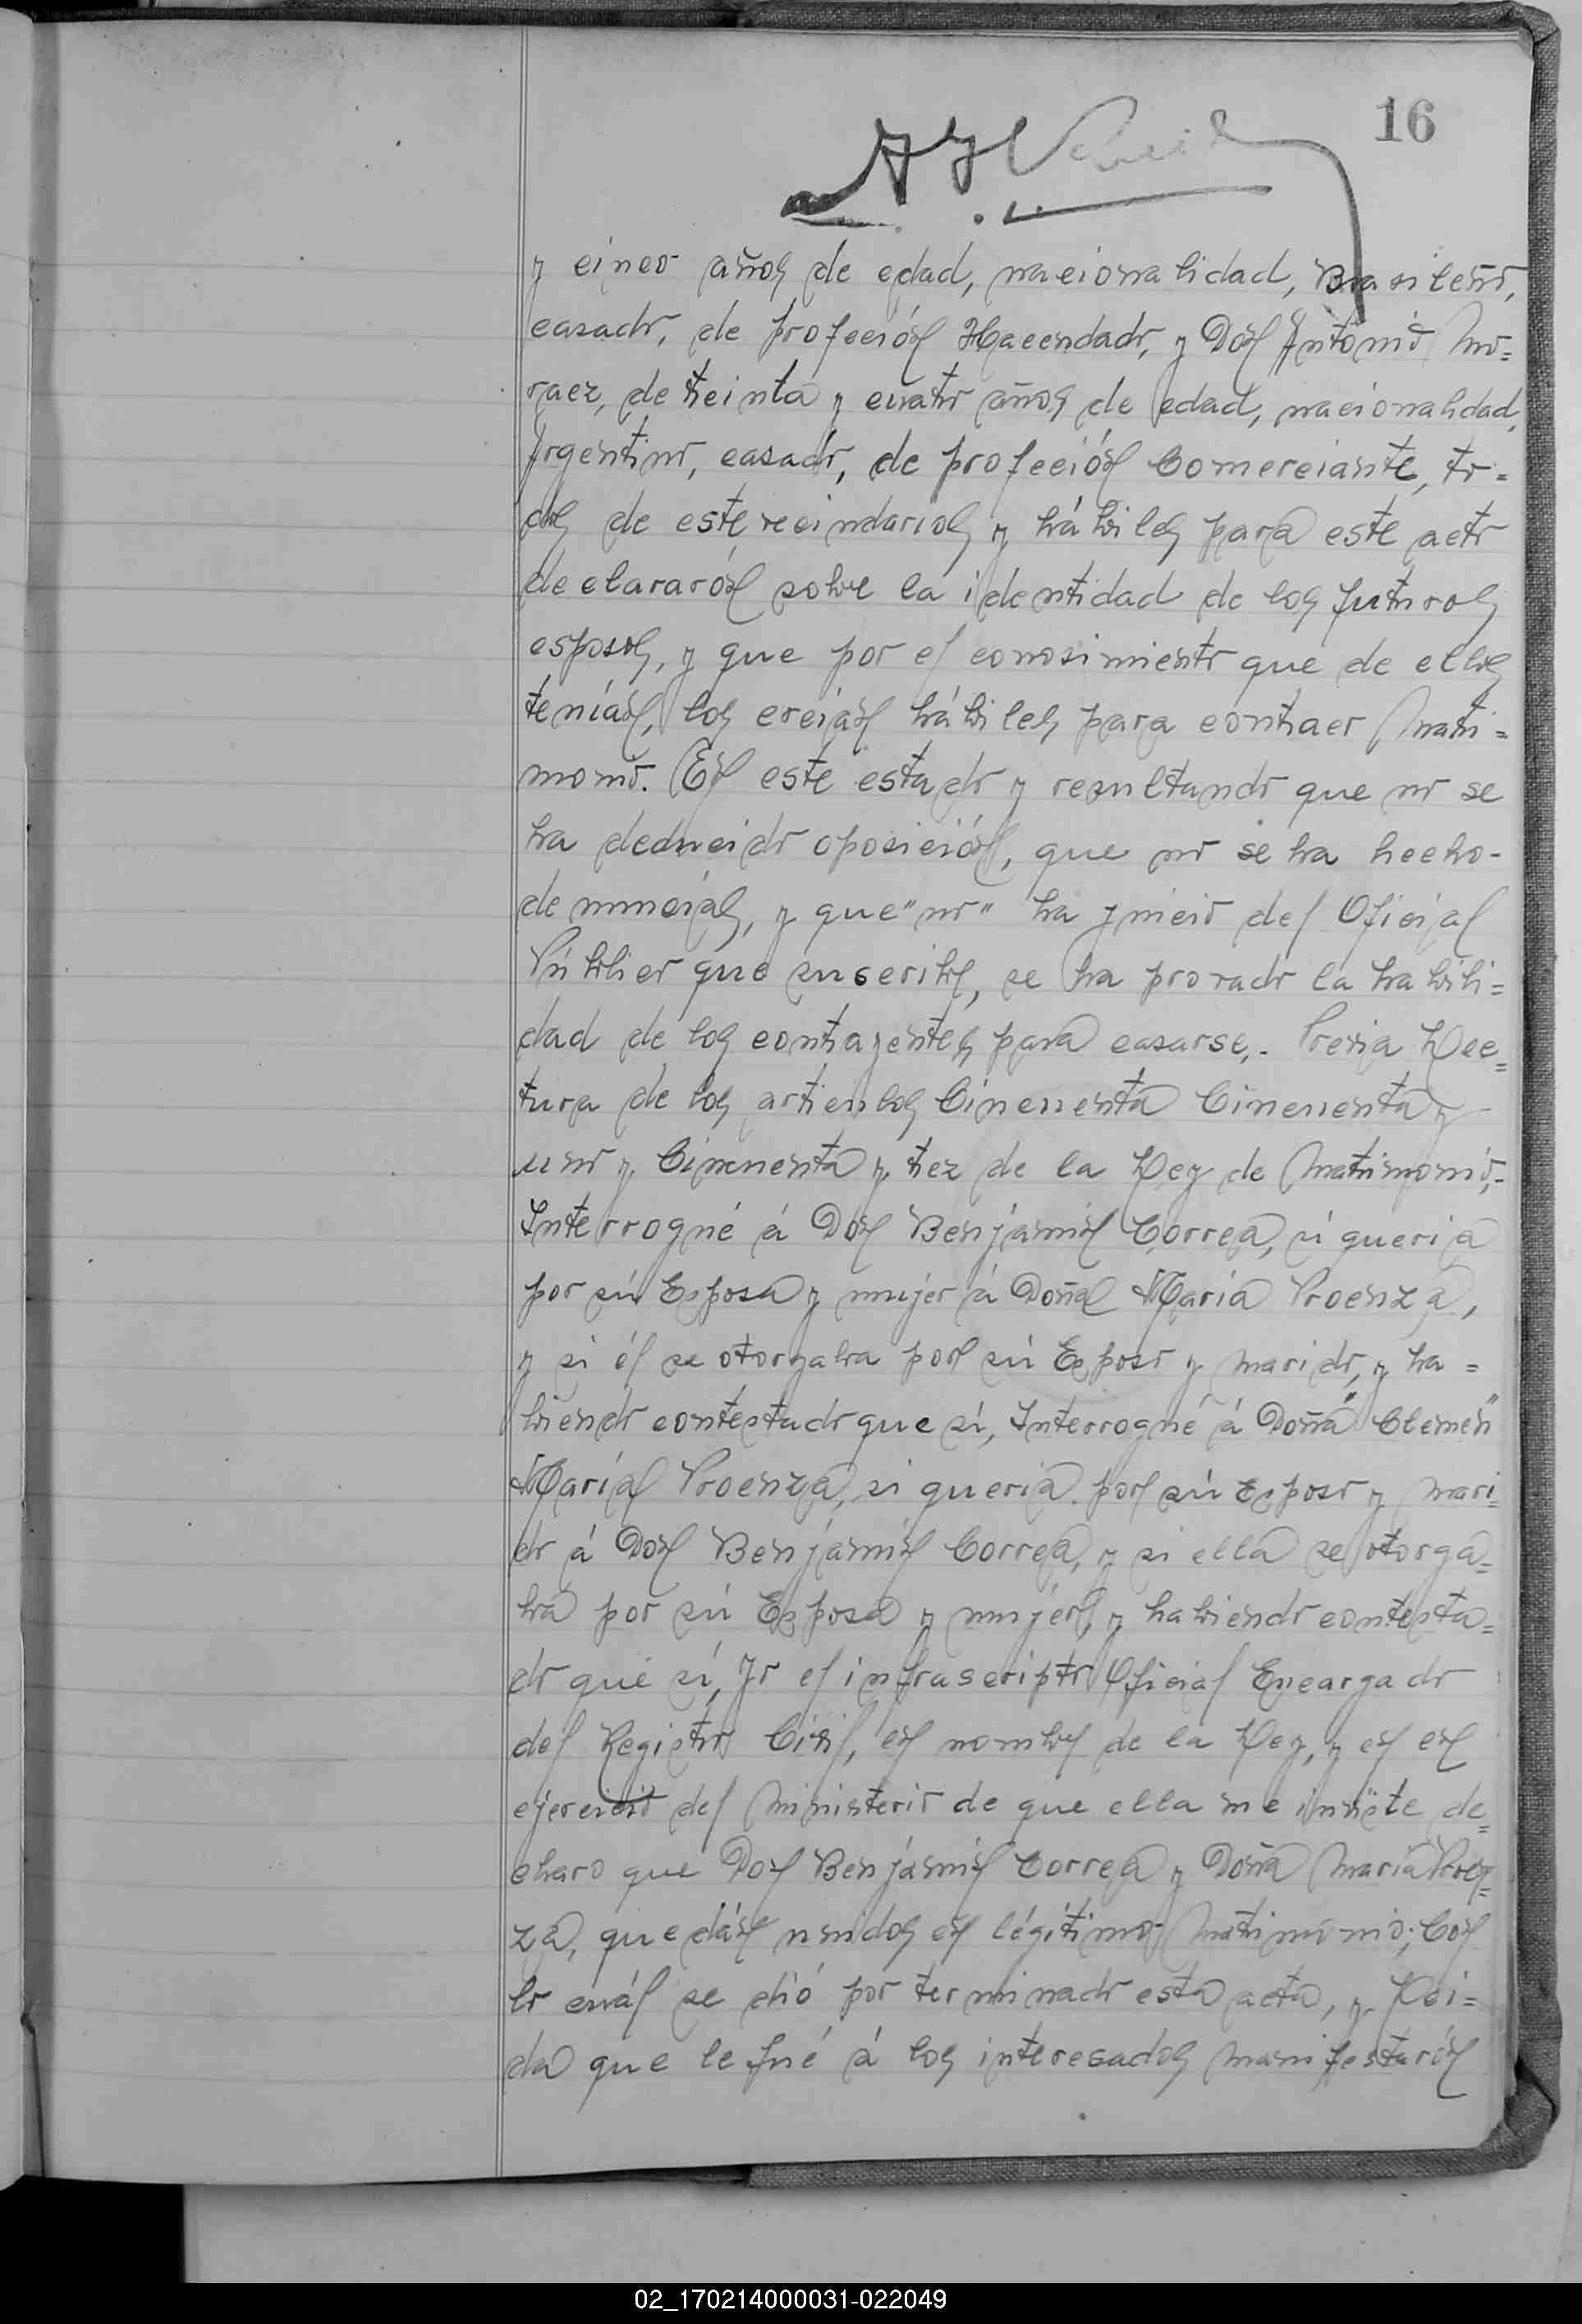 16
y cinco años de edad, nacionalidad, Brasileño,
casado, de profeción Hacendado, y Don Antonio Mo=
raez, de treinta y cuatro años de edad, nacionalidad,
Argentino, casado, de profeción Comerciante, to=
dos de este vecindarios y hábiles para este acto
declararón sobre la identidad de los futuros
esposos, y que por el conosimiento que de ellos
tenían, los creían hábiles para contraer Matri=
monio. En este estado y resultando que no se
ha deducido oposición, que no se ha hecho-
denuncias, y que "no" ha juicio del Oficial
Público que suscribe, se ha provado la habili=
dad de los contrayentes para casarse,. Previa Lec=
tura de los articulos Cincuenta Cincuenta y
uno y Cincuenta y trez de la Ley de Matrimonio,-
Interrogué á Don Benjámin Correa, sí queria
por sú Esposa y mujer á Doña María Proenza,
y si él se otorgaba por sú Esposo y marido, y ha=
biendo contestado que sí, Interrogué á Doña "Clemen"
María Proenza, si queria por sú Esposo y mari=
do á Don Benjámin Correa, y si ella se otorga=
ba por sú Esposa y mujér, y habiendo contesta=
do que sí, Yo el infrascripto Oficial Encargado
del Registro Civil, en nombre de la Ley, y en en
ejercicio del Ministerio de que ella me inviste de=
claro que Don Benjámin Correa y Doña María Proen=
za, quedán unidos en légitimo Matrimonio; Con
lo cuál se dió por terminado esta acta, y Leí=
da que le fué á los interesados manifestarón
02_170214000031-022049